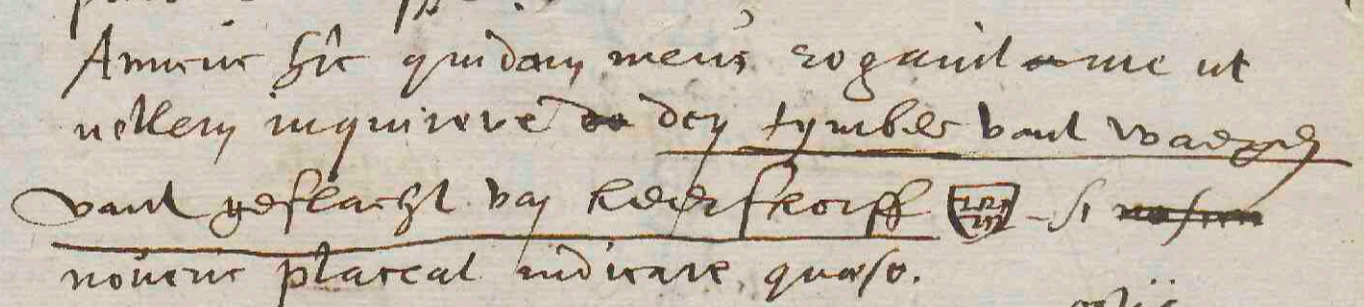 Amicus hic quidam meus rogavit me ut
vellem inquirere den tymber vant waepen
vant geslacht van keerskorff si
noveris placeat indicare quæso.